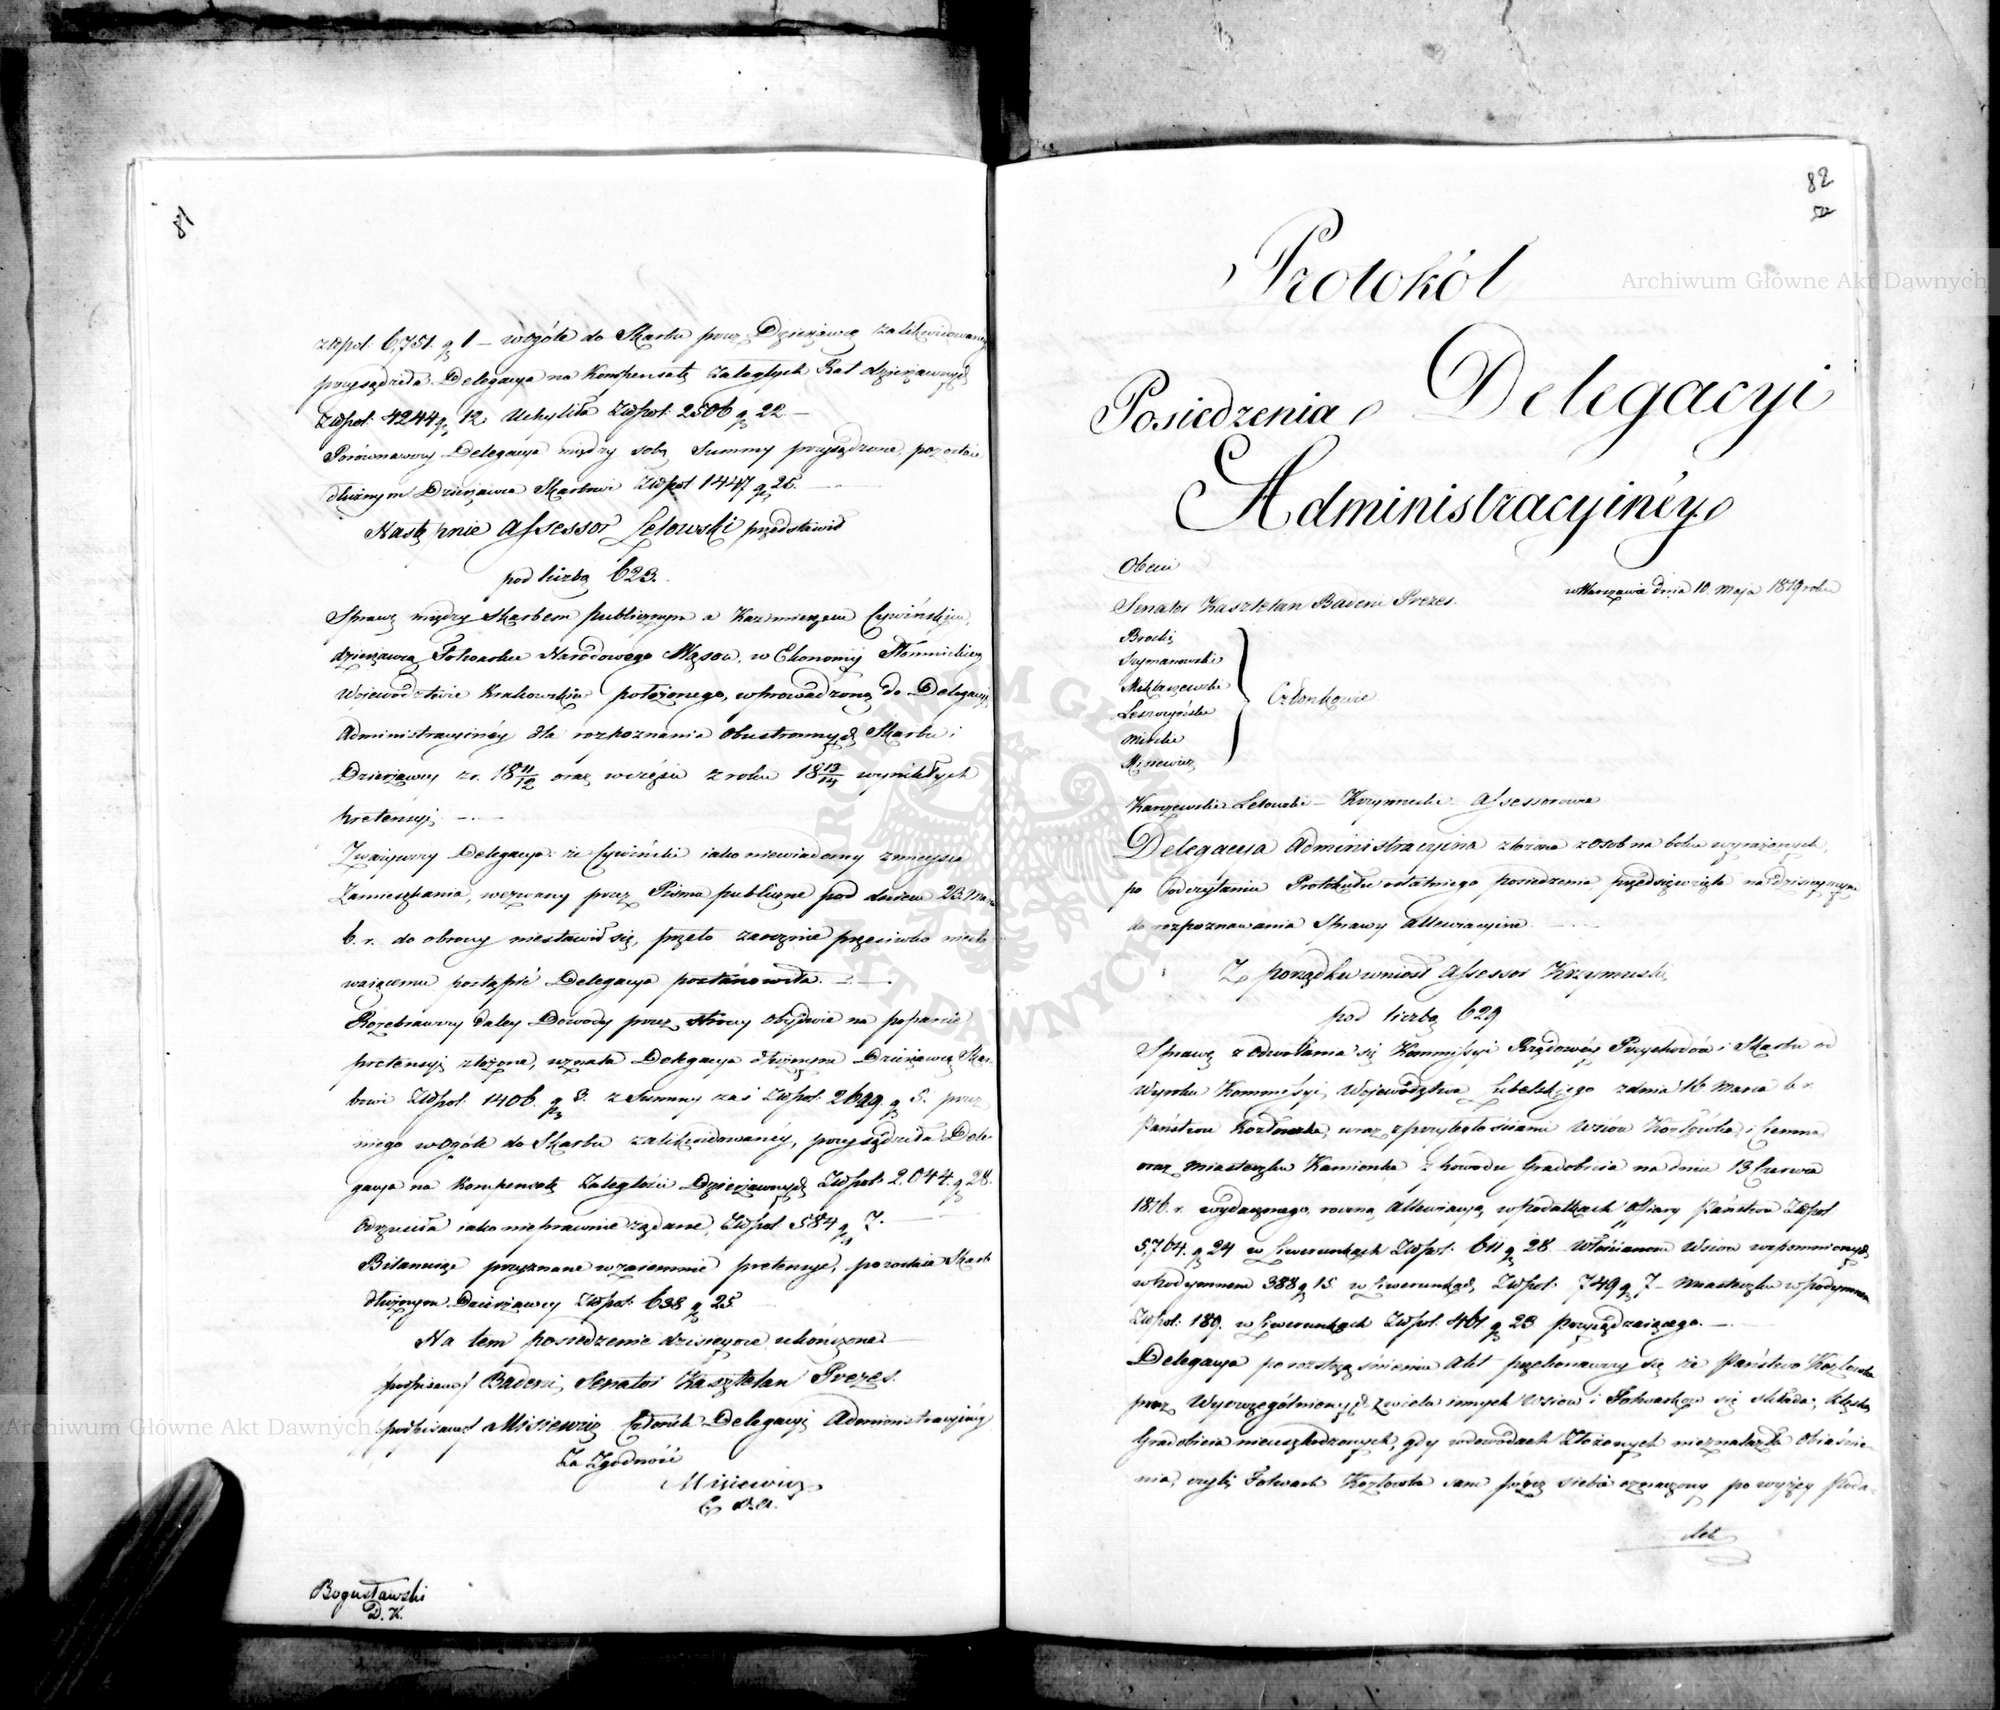 81
złpol: 6,751. gr 1 – wogóle do Skarbu przez Dzierżawcę zalikwidowanéy
przysądziła Delegacya na Kompensatę zaległych Rat dzierżawnych
Złtpol: 4244 gr 12. Uchyliła Złtpol: 2506 gr 22 –
Porównawszy Delegacya między sobą Summy przysądzone, pozostaie
dłużnym Dzierżawca Skarbowi Złtpol 1447 gr 25.
Następnie Assessor Letowski przedstawił
pod liczbą 623.
Sprawę między Skarbem publicznym a Kazimierzem Cywińskim,
dzierżawcą Folwarku Narodowego Wąsow, w Ekonomij Słomnickiey
Województwie Krakowskim położonego, wprowadzoną do Delegacyi
Administracyinéy dla rozpoznania Obustronnych Skarbu i
Dzierżawcy z r. 18 11/12 oraz wczęści z roku 18 13/14 wynikłych
pretensyi. —
Zważywszy Delegacya: że Cywiński iako niewiadomy z mieysca
Zamieszkania, wezwany przez Pisma publiczne pod dniem 23. Marca
b. r. do obrony niestawił się, przeto zaocznie przeciwko niesta-
waiącemu postąpić Delegacya postanowiła. —
Rozebrawszy daley Dowody przez strony Obydwie na poparcie
pretensyi złożone, uznała Delegacya dłużnym Dzierżawcę Skar-
bowi Złtpol: 1406. gr 3. z Summy zaś Złtpol: 2629 gr 5. przez
niego wogóle do Skarbu zalikwidowanéy, przysądziła Dele-
gacya na Kompensatę Zaległości Dzierżawnych Złtpol: 2.044. gr 28.
Odrzuciła iako nieprawnie żądane, Złtpol 584 gr 7.
Bilansuiąc przyznane wzaiemnie pretensye, pozostaie Skarb
dłużnym Dzierżawcy Złtpol: 638 gr 25.
Na tem posiedzenie dzisieysze ukończone
/podpisano/ Badeni, Senator Kasztelan Prezes.
/podpisano/ Misiewicz Członek Delegacyi Administracyinéy
Za Zgodność
Misiewicz
Bogusławski
D. K.
82
Protokół
Posiedzenia Delegacyi
Administracyinéy
Obecni
w Warszawie dnia 10. Maja 1819 roku
Senator Kasztelan Badeni Prezes.
Brocki
Szymanowski
Miklaszewski
Leszczyński
Mirecki
Misiewicz
Członkowie
Karczewski Letowski – Krzymuski Assessorowie
Delegacya Administracyina złożona z osób na boku wyrażonych,
po Odczytaniu Protokułu ostatniego posiedzenia przedsięwzięła na dzisieyszym
do rozpoznawania Sprawy allewiacyine —
Z porządku wniosł Assessor Krzymuski,
pod liczbą 629
Sprawę z odwołania się Kommissyi Rządowéy Przychodów i Skarbu od
Wyroku Kommissyi Województwa Lubelskiego z dnia 16 Marca b. r.
Państwu Kozłowka, wraz z przyległościami Wsiów Kozłówka, i Siemna
oraz miasteczku Kamionka, z powodu Gradobicia na dniu 13 Czerwca
1816. r. wydarzonego, roczną Allewiacyą w podatkach Ofiary Państwu Złtpol
5,764. gr 24 w Liwerunkach Złtpol: 611 gr 28. Włościanom Wsiow wspomnionych
w Podymnem 388 gr 15. w Liwerunkach, Złtpol: 749 gr 7 – Miasteczku w podymnem
Złtpol: 189. w Liwerunkach Złtpol. 461 gr 23 Przysądzaiącego. —
Delegacya po roztrząśnieniu Akt przekonawszy się że Państwo Kozłowka
prócz Wyszczególnionych z wielu innych Wsiow i Folwarkow się składa, klęską
Gradobicia nieuszkodzonych, gdy wdowodach Złożonych nieznalazła Obiaśnie-
nia, czyli Folwark Kozłowka sam przez siebie oznaczony po wyższy Poda-
tek